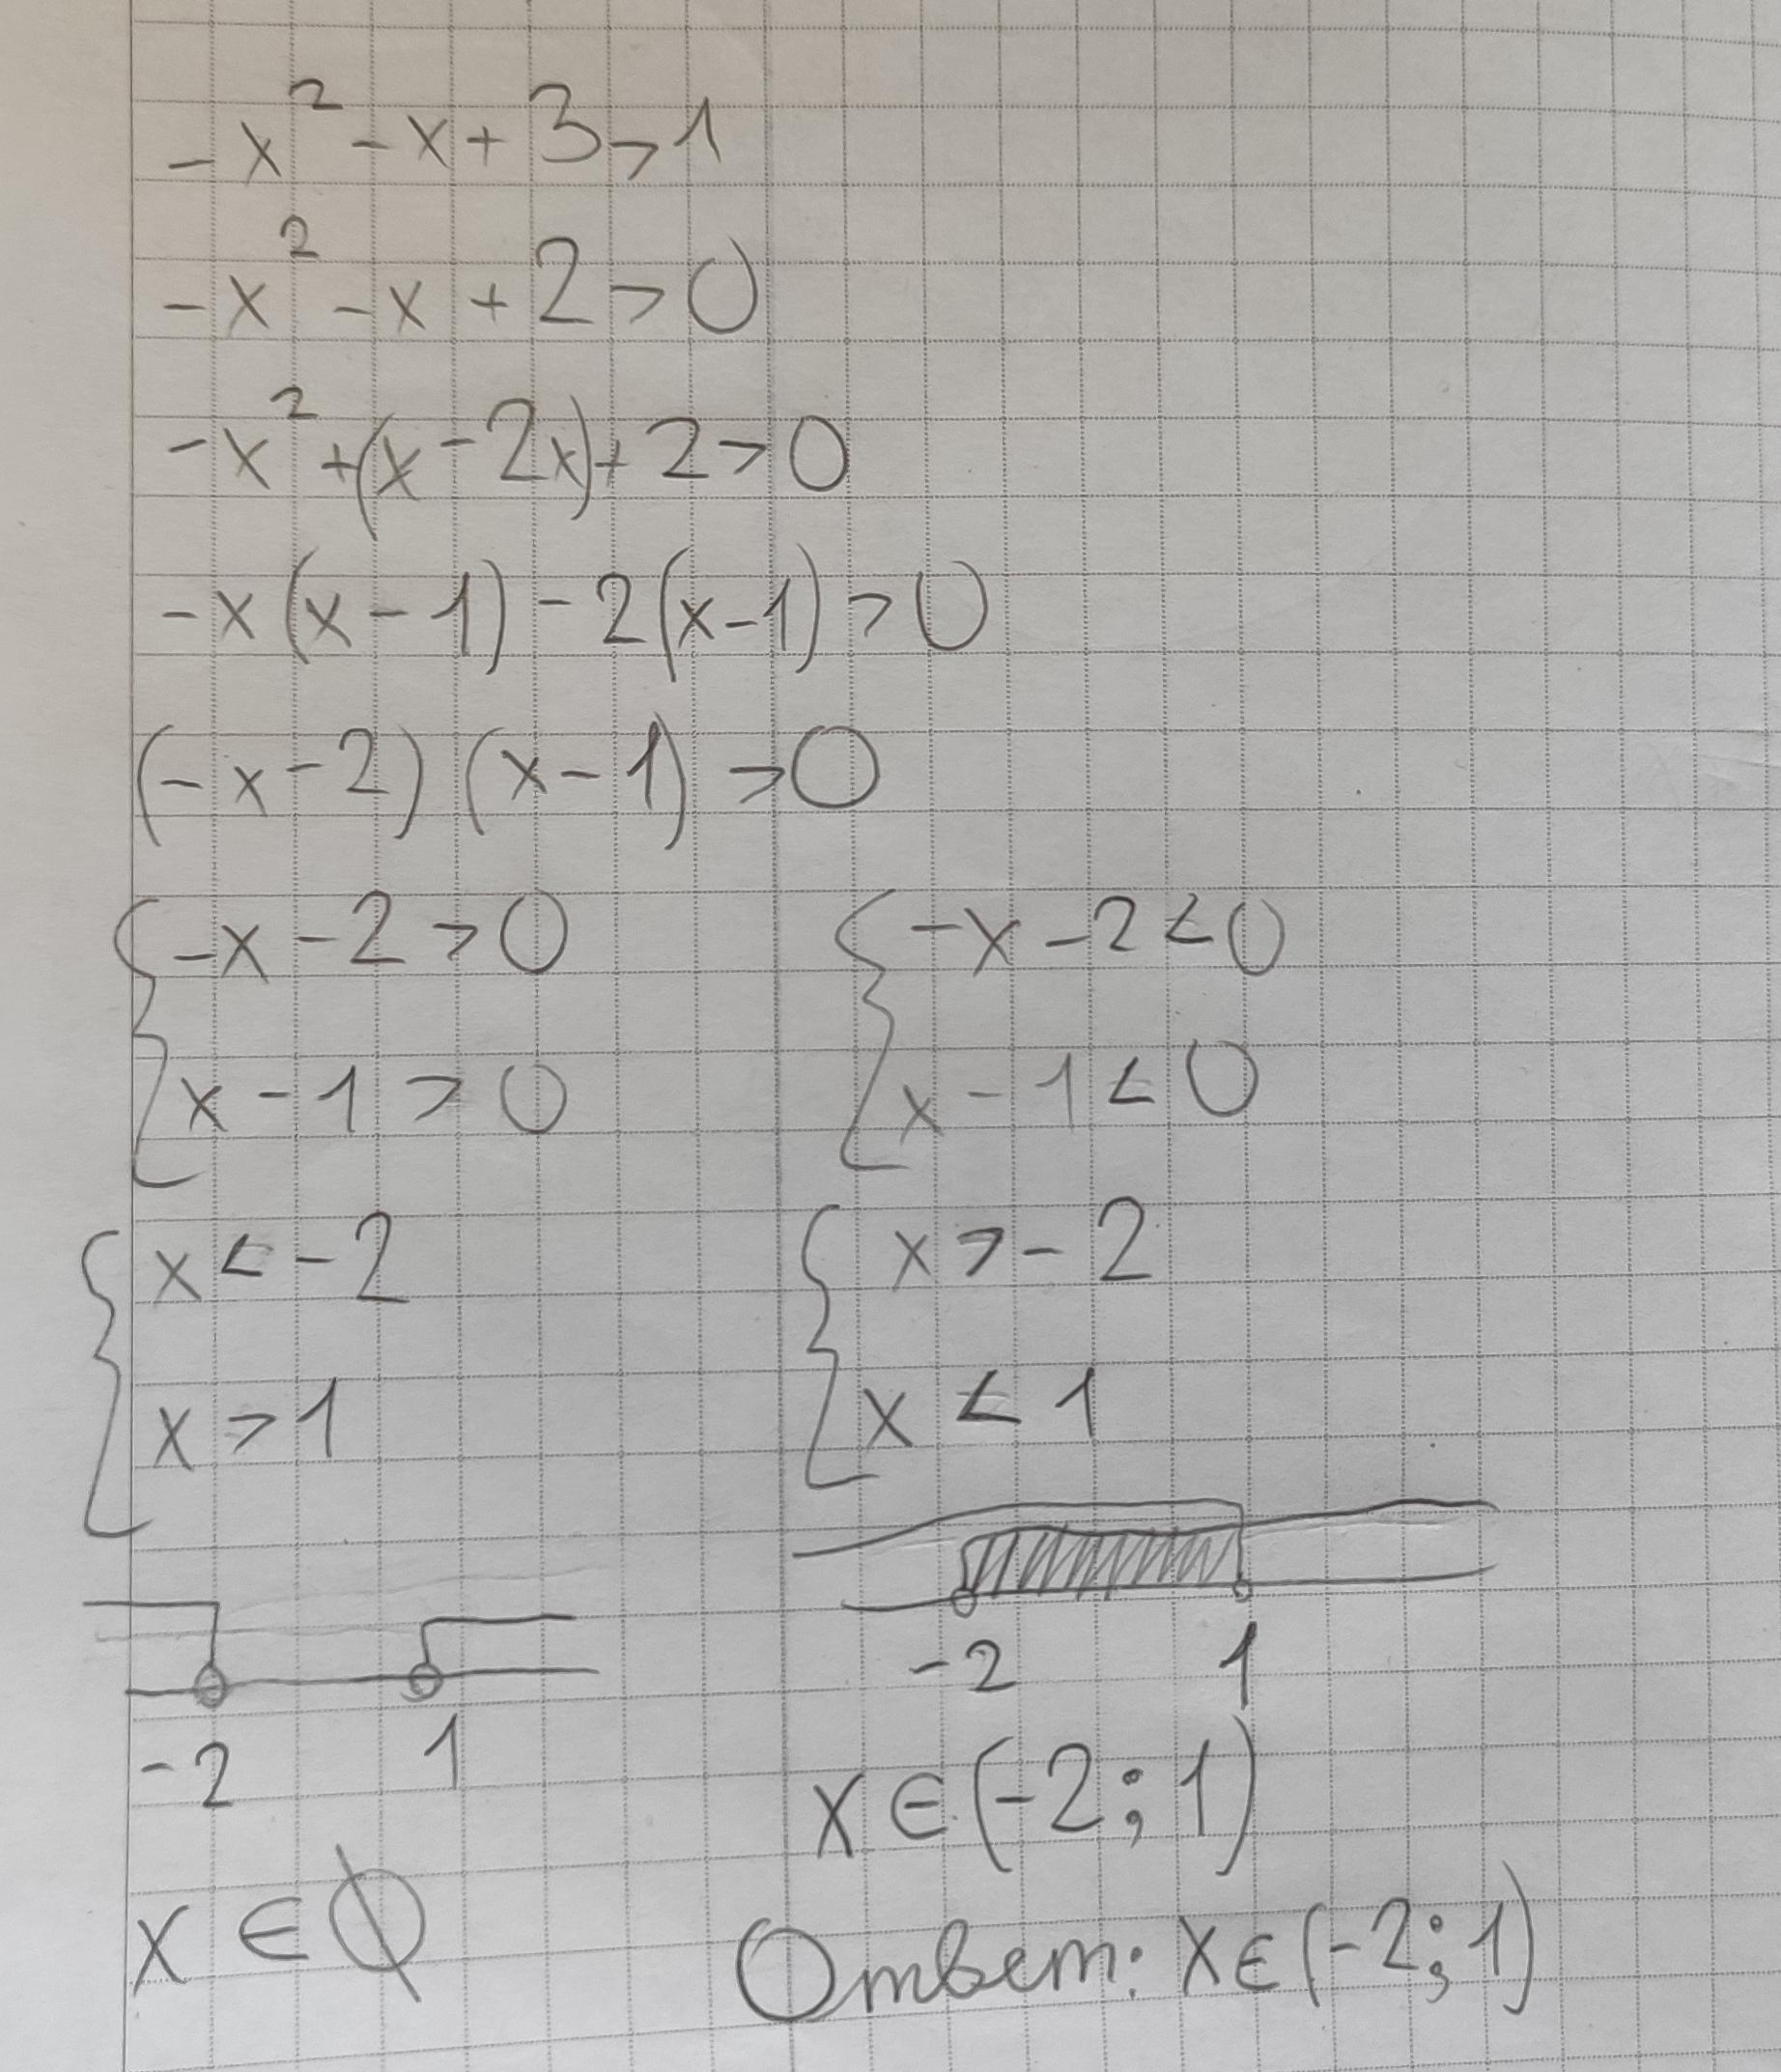 -x² - x + 3 > 1
-x² - x + 2 > 0
-x² + (x - 2x) + 2 > 0
-x(x - 1) - 2(x - 1) > 0
(-x - 2)(x - 1) > 0
{-x - 2 > 0
x - 1 > 0
{x < -2
x > 1
-2 1
x ∈ ∅
{-x - 2 < 0
x - 1 < 0
{x > -2
x < 1
-2 1
x ∈ (-2; 1)
Ответ: x ∈ (-2; 1)